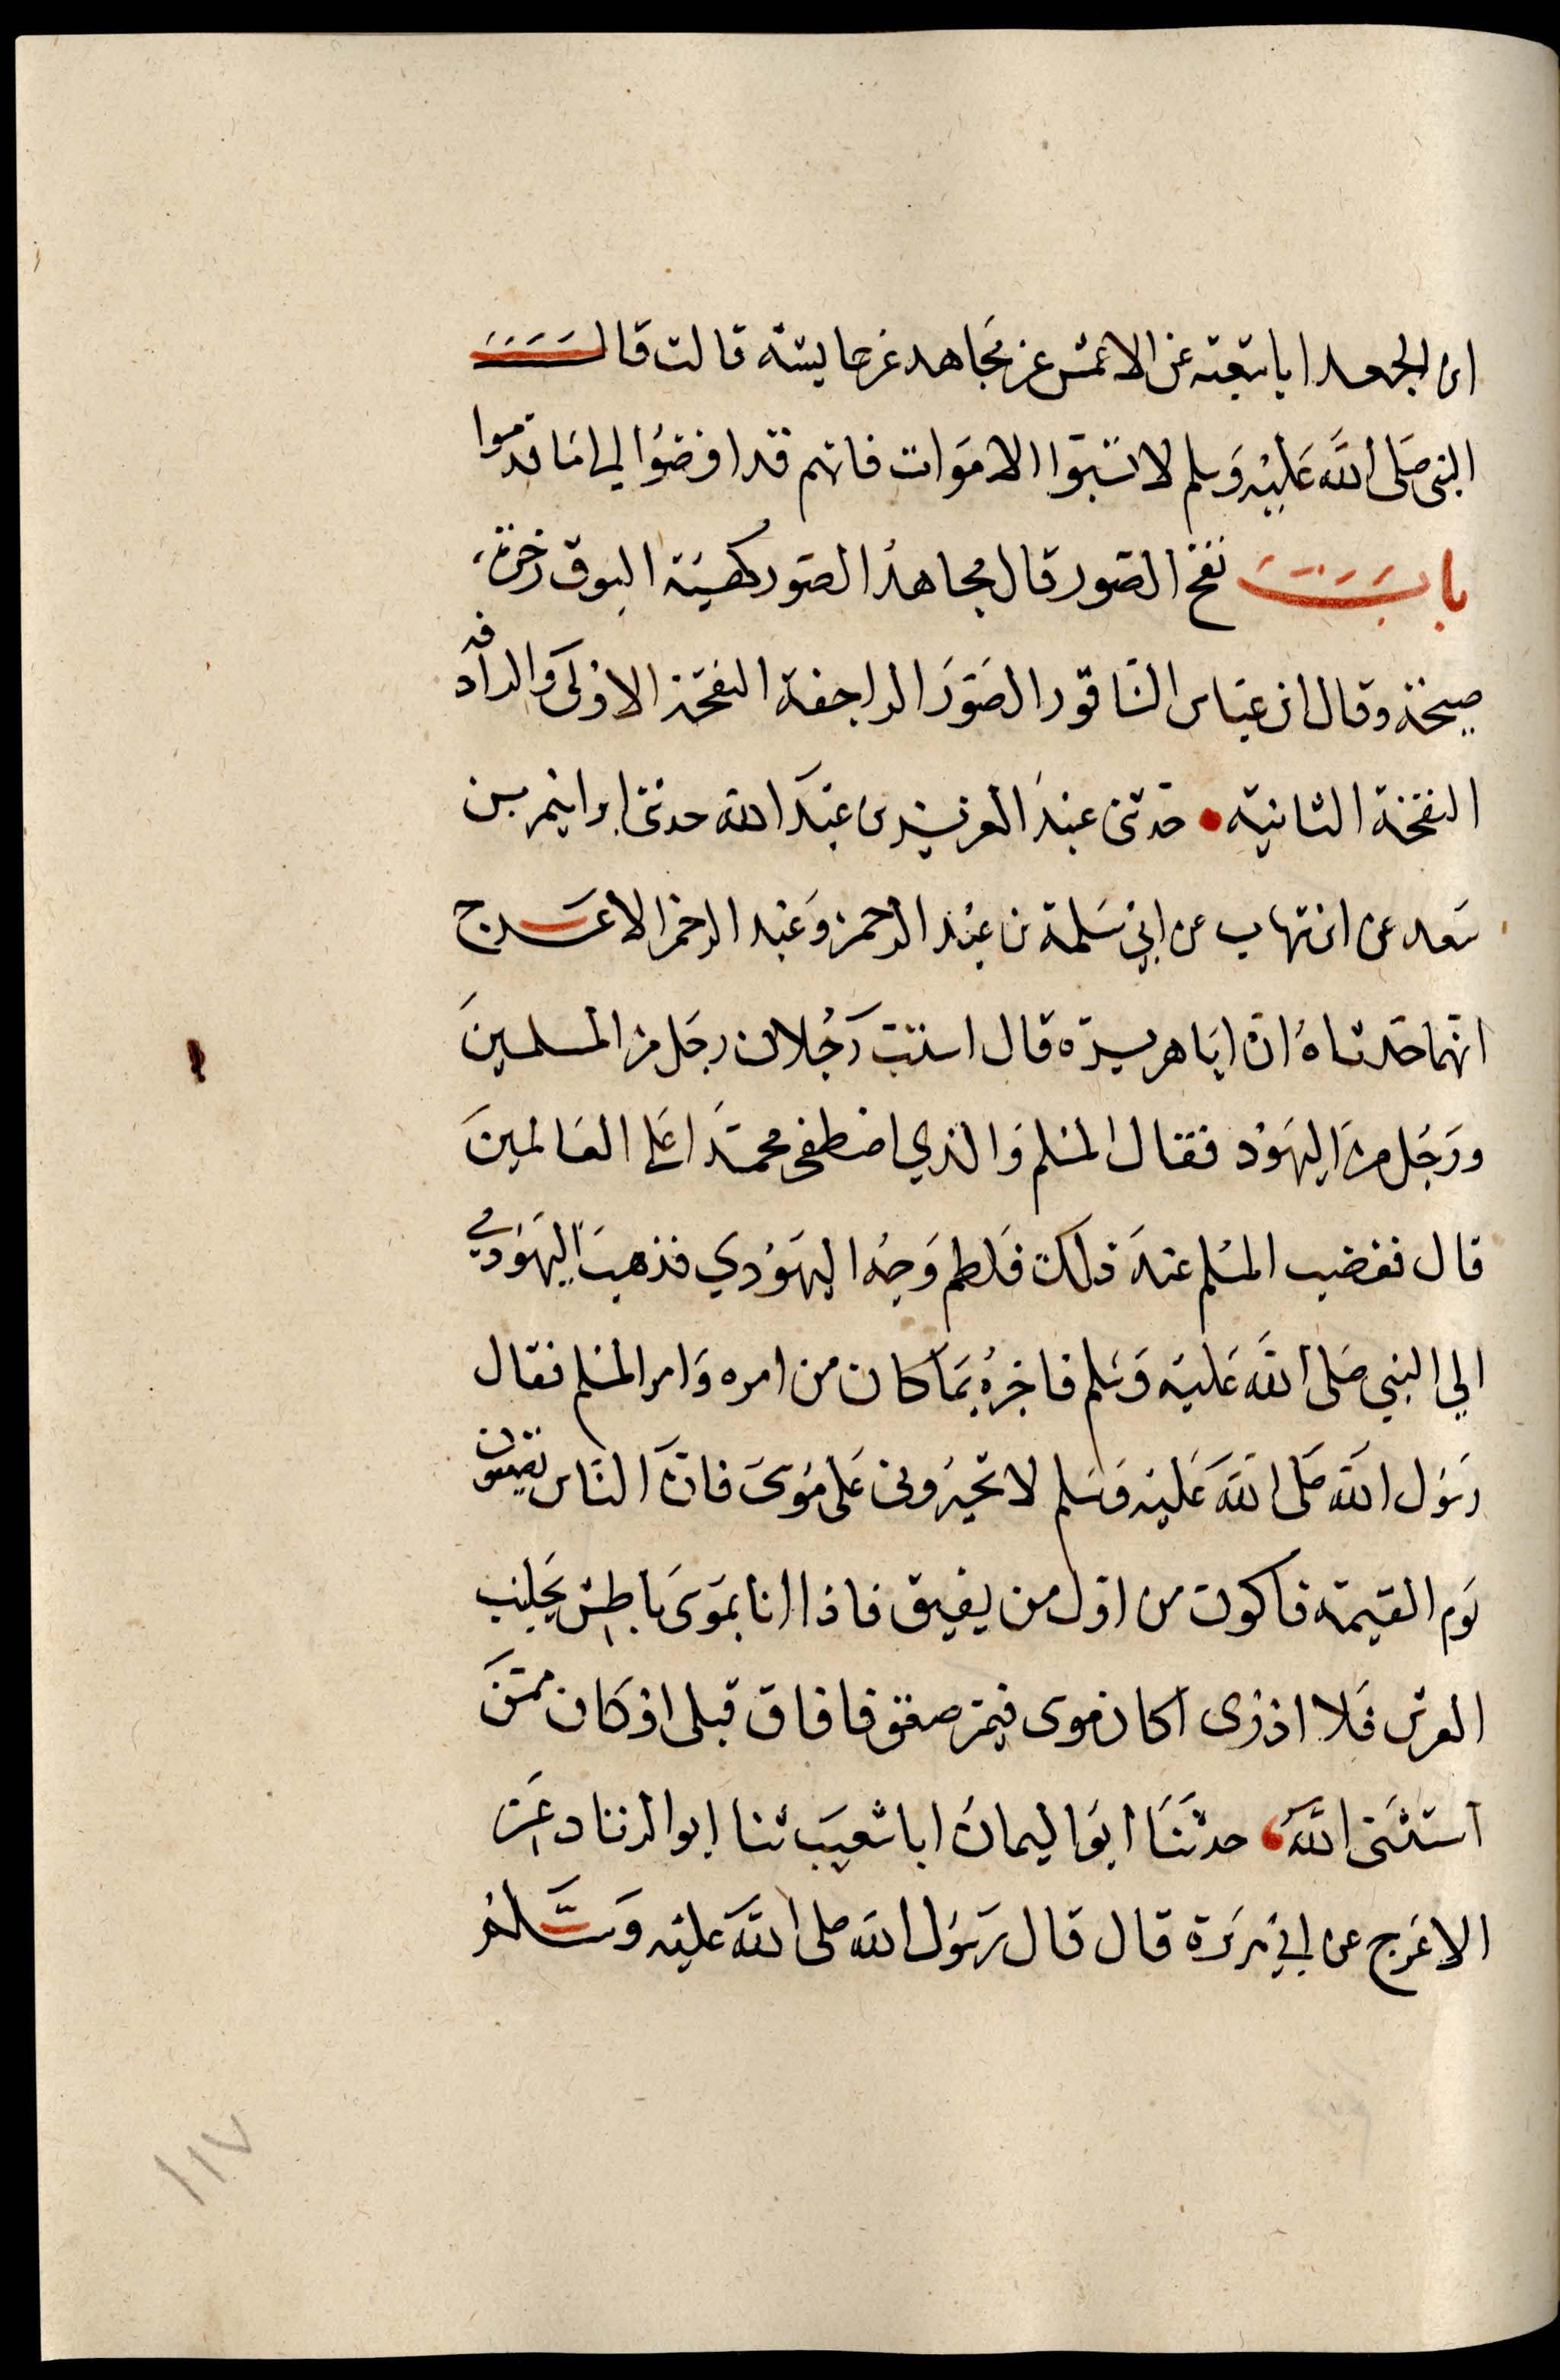 ابن الجعد ابا شعبة عن الاعمش عن مجاهد عن عايشة قالت قال
النبي صَلى اللَّه عَليْهِ وَسلم لا تسبّوا الامَوات فانهم قد افضَوُا الي مَا قدموا
باب نفخ الصّور قال مجاهدُ الصّور كهيئة البوق زجرة
صيحة وقال ابن عبّاس النّاقور الصّوَر الراجفة النفخة الاوْلىَ وَالرادفة
النفخة الثانية • حدثنى عبدُ العزيز بن عبَد الله حدثنى ابراهيم بن
سَعد عن ابن شهاب عن ابي سَلمة بن عبْد الرحمن وَعَبْد الرحمن الاعرج
انهما حَدثاهُ انّ ابَا هريرة قال استبَّ رَجُلان رجَل من المسلمينَ
ورَجُل من اليهَوْد فقال المسْلم وَالذي اصْطفى محمّدَا عَلى العَالمينَ
قال فغضب المسُلم عندَ ذلك فَلطم وَجهْ اليهَوُدي فذهبَ اليهَوُدي
الي النبي صَلى اللَّه عَليَه وَسَلم فاخبرهُ بمَا كان من امره وَامر المسْلم فقال
رَسوُل الله صَلى اللَّه عَليْه وَسَلم لا تخيّرُونى عَلى موُسىَ فانّ النّاس يصعقون
يَوم القيمة فاكون من اوّل من يفيق فاذا انا بموَسىَ باطش بجَانب
العرش فَلا ادْرى اكان موسى فيمن صعق فافاق قبلى اوْ كَان ممّنَ
اسَتثنَى اللَّهَ • حدثنَا ابوَ اليمانُ ابا شعيَب ثنا ابو الزناد عَن
الاعَرج عن ابي هرَيرَة قال قال رَسوُل اللَه صلى اللَّه عَليْه وَسَلم
١١٧